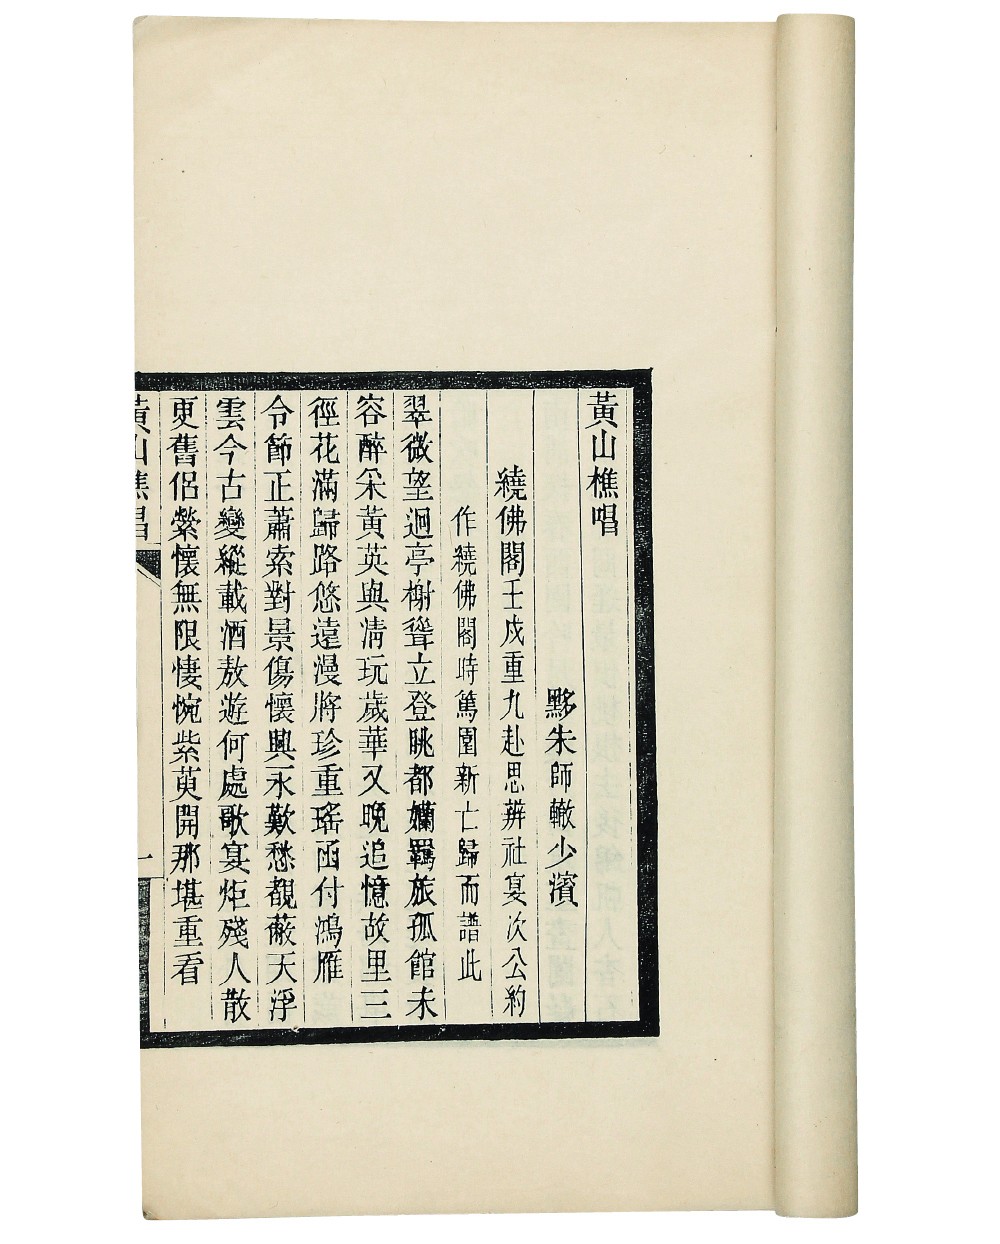 黃山樵唱
黟朱師轍少濱
繞佛閣壬戌重九赴思辨社宴次公約
作繞佛閣時篤圍新亡歸而譜此
翠微望迥亭榭聳立登眺都嬾羈旅孤館未
容醉采黃英與淸玩歲華又晚追憶故里三
徑花滿歸路悠遠漫將珍重瑤函付鴻雁
令節正蕭索對景傷懷興永歎愁覩蔽天浮
雲今古變縱載酒敖遊何處歌宴炬殘人散
更舊侶縈懷無限悽惋紫萸開那堪重看
黃山樵唱
一